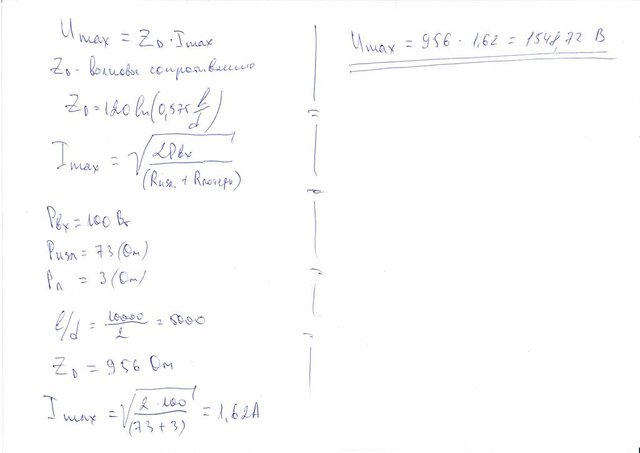 Umax = Z₀ · Imax
Z₀ - волновы сопротивление
Z₀ = 120 ln(0,575 l/d)
Imax = √(2Pвх / (Rизл. + Rпотерь))
Pвх = 100 Вт
Pизл = 73 (Ом)
Pп = 3 (Ом)
l/d = 10000/2 = 5000
Z₀ = 956 Ом
Imax = √(2 · 100 / (73 + 3)) = 1,62А
Umax = 956 · 1,62 = 1548,72 В